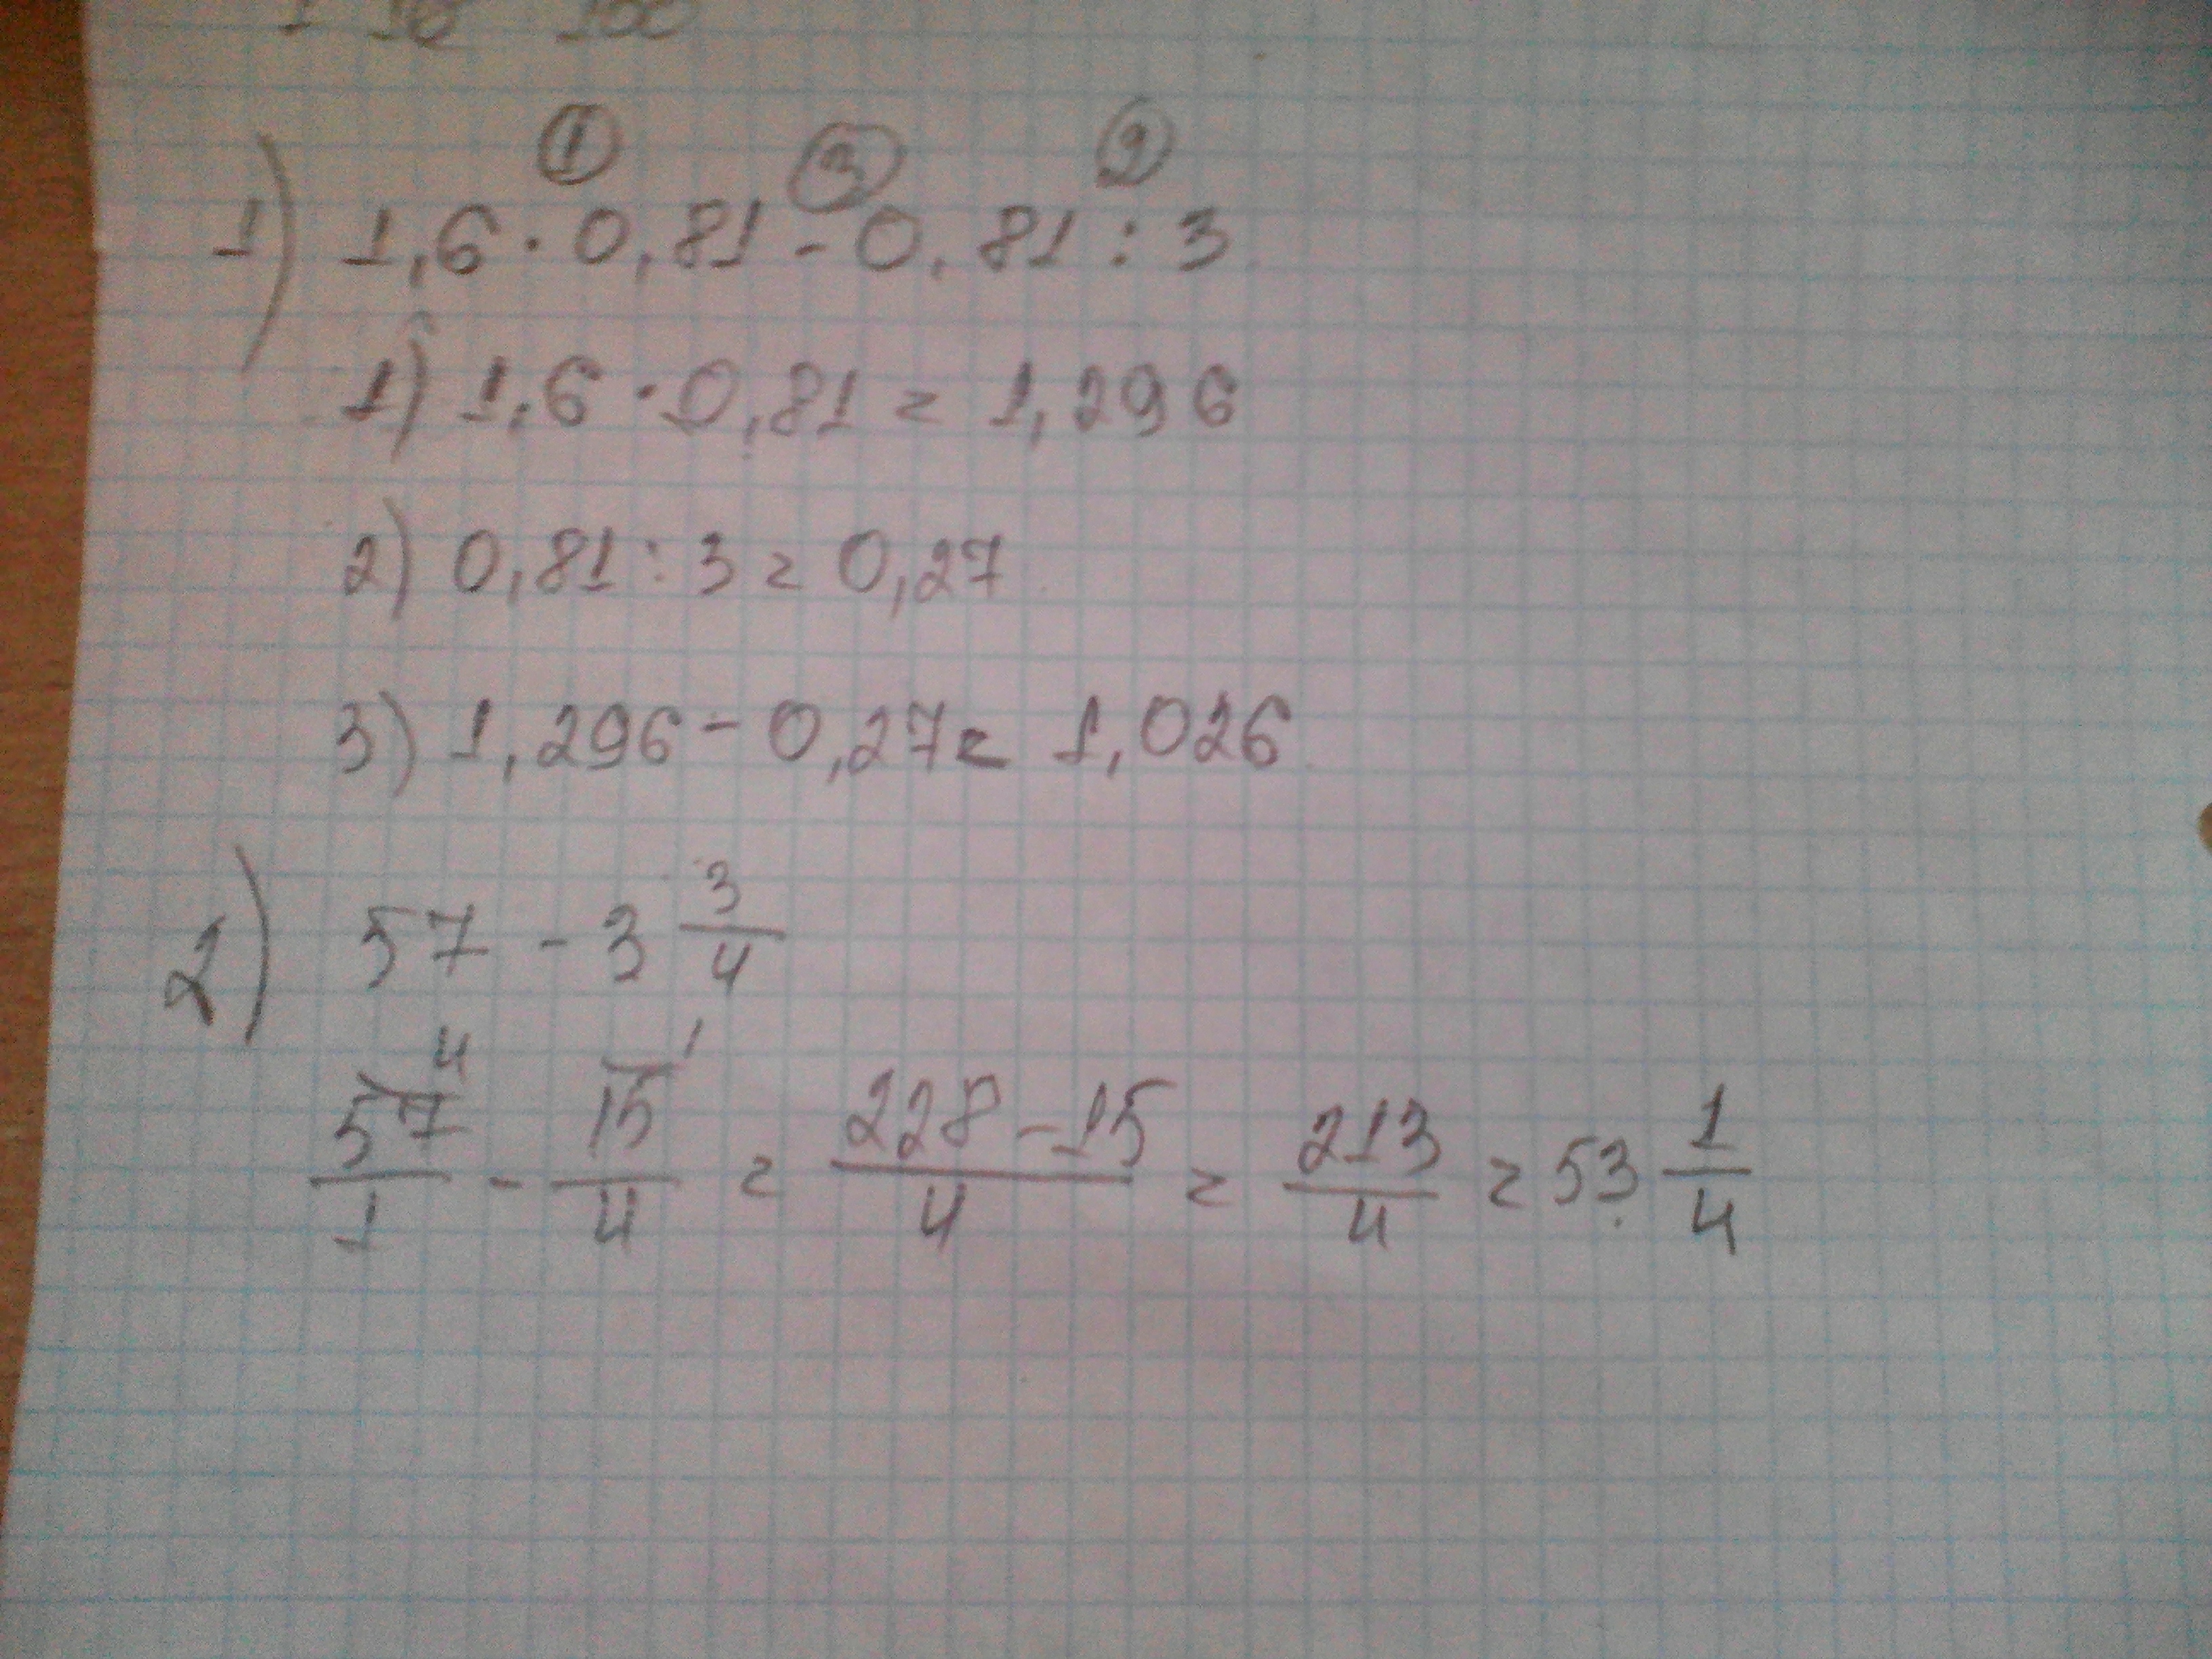 ① ③ ②
1) 1,6 · 0,81 - 0,81 : 3
1) 1,6 · 0,81 = 1,296
2) 0,81 : 3 = 0,27
3) 1,296 - 0,27 = 1,026
2) 57 - 3 3/4
57/1 ⁴ - 15/4 ¹ = 228-15/4 = 213/4 = 53 1/4